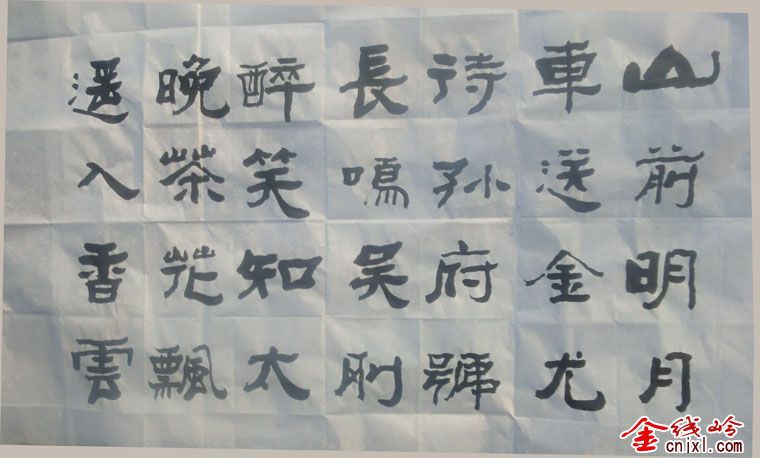 山前明月
車送金尤
待孙府號
長鳴吴刚
醉笑知太
晚茶花飄
入香雲
金线岭
cnjxl.com